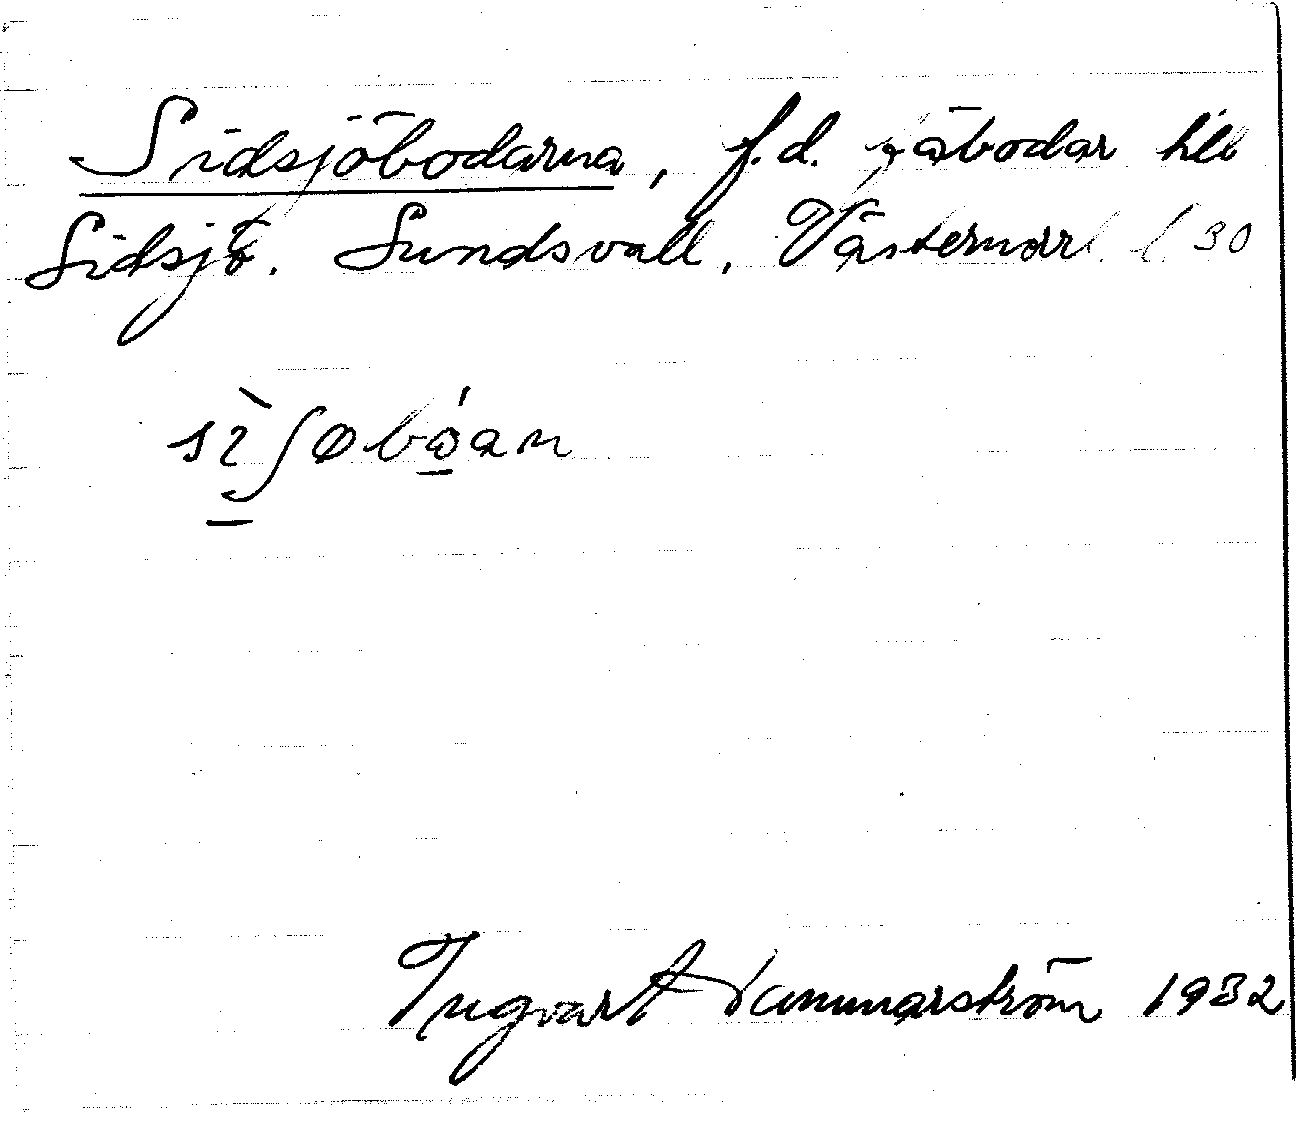 Sidsjöbodarna, f.d. fäbodar till
Sidsjö. Sundsvall, Västernorrl. l 30
Ingvart Hammarström 1932